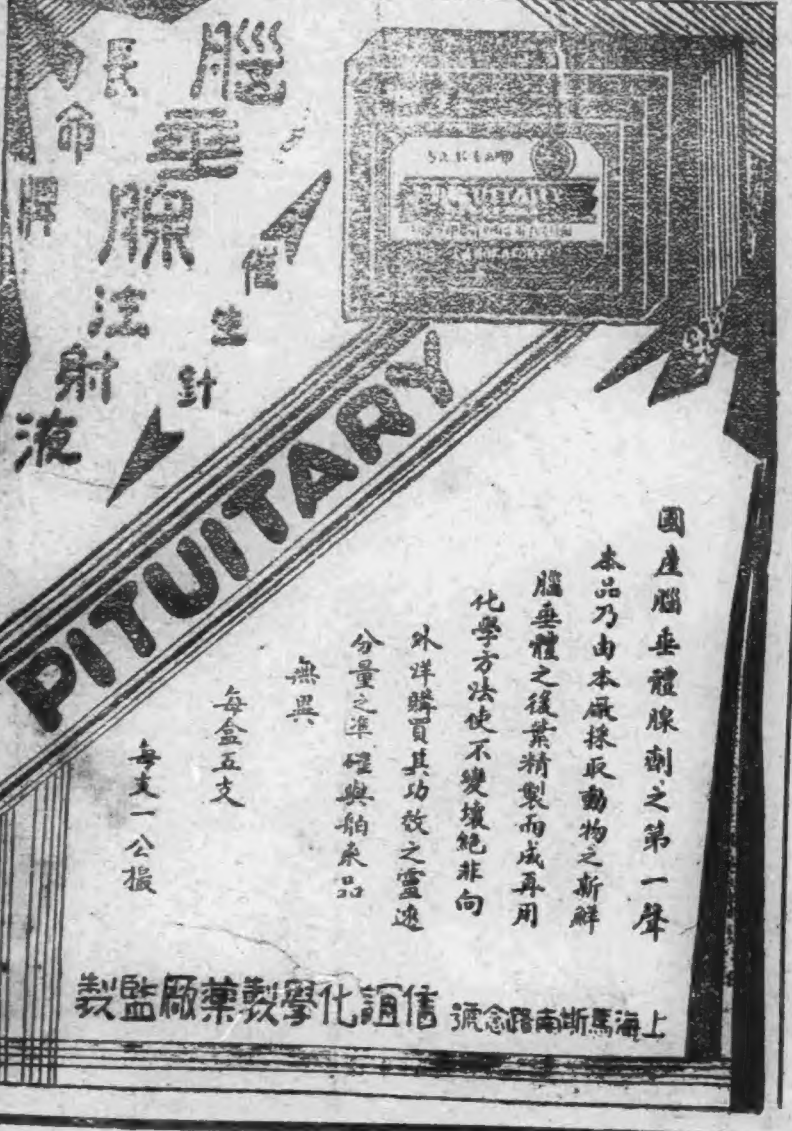 長命牌
腦垂腺
注射液
催生針
PITUITARY
LABORATORY
國產腦垂體腺劑之第一聲
本品乃由本廠採取動物之新鮮
腦垂體之後葉精製而成再用
化學方法使不變壞絕非向
外洋購買其功效之靈速
分量之準確與舶來品
無異
每盒五支
每支一公撮
上海馬斯南路念號
信誼化學製藥廠監製